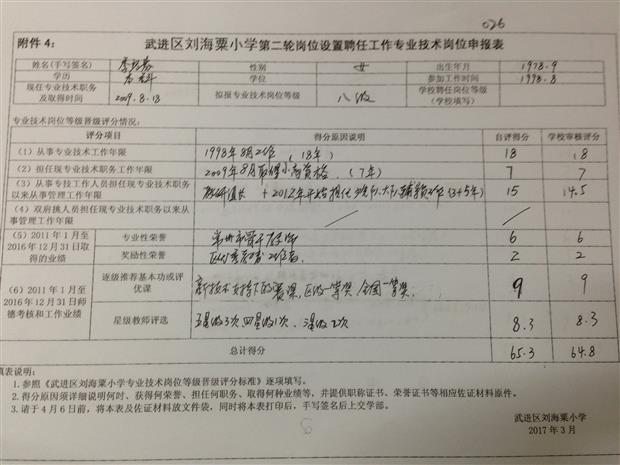 026
附件 4：
武进区刘海粟小学第二轮岗位设置聘任工作专业技术岗位申报表
姓名(手写签名) 性别 女 出生年月 1978.9
学历 本科 学位 参加工作时间 1998.8
现任专业技术职务及取得时间 2009.8.18 拟报专业技术岗位等级 八级 学校聘任岗位等级(学校填写)
专业技术岗位等级晋级评分情况：
评分项目 得分原因说明 自评得分 学校审核评分
(1) 从事专业技术工作年限 1998年8月工作 (18年) 18 18
(2) 担任现专业技术职务工作年限 2009年8月取得小高资格. (7年) 7 7
(3) 从事专技工作人员担任现专业技术职务以来从事管理工作年限 教研组长 +2012年开始担任 大队辅导员工作 (3+5年) 15 14.5
(4) 双肩挑人员担任现专业技术职务以来从事管理工作年限 /
(5) 2011 年 1 月至 2016 年 12 月 31 日取得的业绩 专业性荣誉 常州市骨干 6 6
奖励性荣誉 2 2
(6) 2011 年 1 月至 2016 年 12 月 31 日师德考核和工作业绩 逐级推荐基本功或评优课 新技术支持下的赛课，区级一等奖，全国一等奖. 9 9
星级教师评选 五星级3次 四星级1次、三星级2次 8.3 8.3
总计得分 65.3 64.8
填表说明：
1. 参照《武进区刘海粟小学专业技术岗位等级晋级评分标准》逐项填写。
2. 得分原因须详细说明何时、获得何荣誉、担任何职务、取得何种业绩等，并提供职称证书、荣誉证书等相应佐证材料原件。
3. 请于 4 月 6 日前，将本表及佐证材料放文件袋，同时将本表打印后，手写签名后上交学部。
武进区刘海粟小学
2017 年 3 月